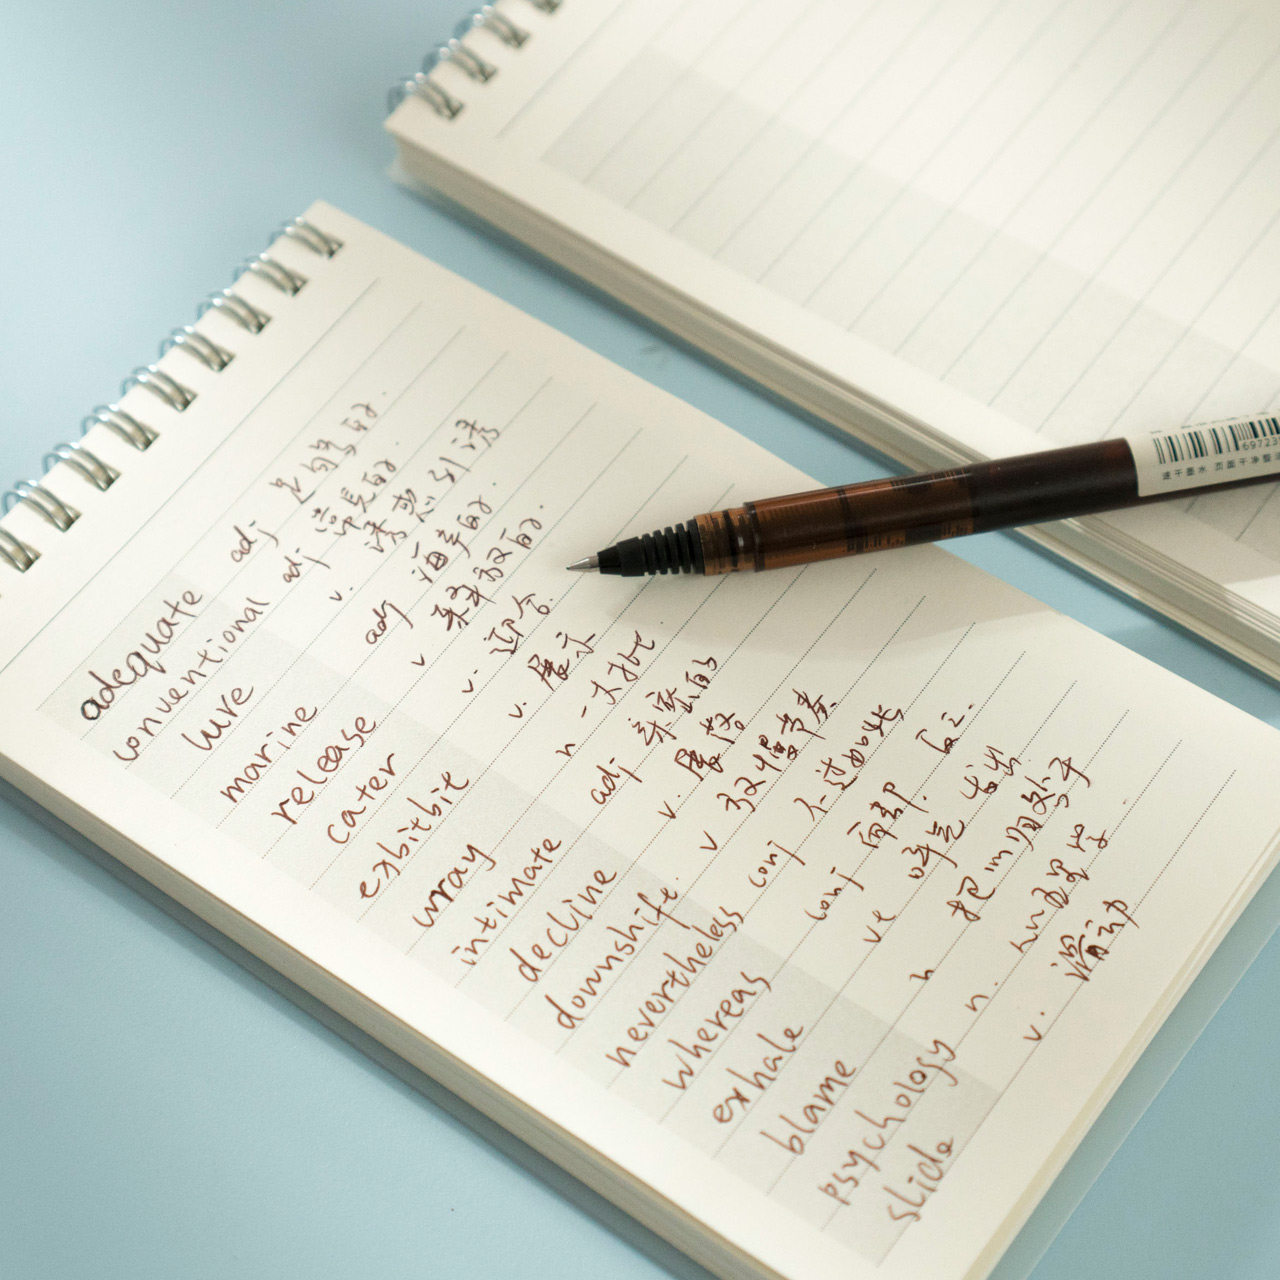 adequate adj 足够的.
conventional adj 常見的.
lure v. 诱惑 引诱
marine adj 海产的.
release v 释放的.
cater v. 迎合.
exbitbit v. 展示
wray n 一大批
intimate adj. 亲密的
decline v.
downshife. v 放慢节奏
nevertheless conj 不过
whereas conj 而却.
exhale ve 呼气 出
blame n 把 归 于
psychology n. 心灵学
slide v. 滑动
69723